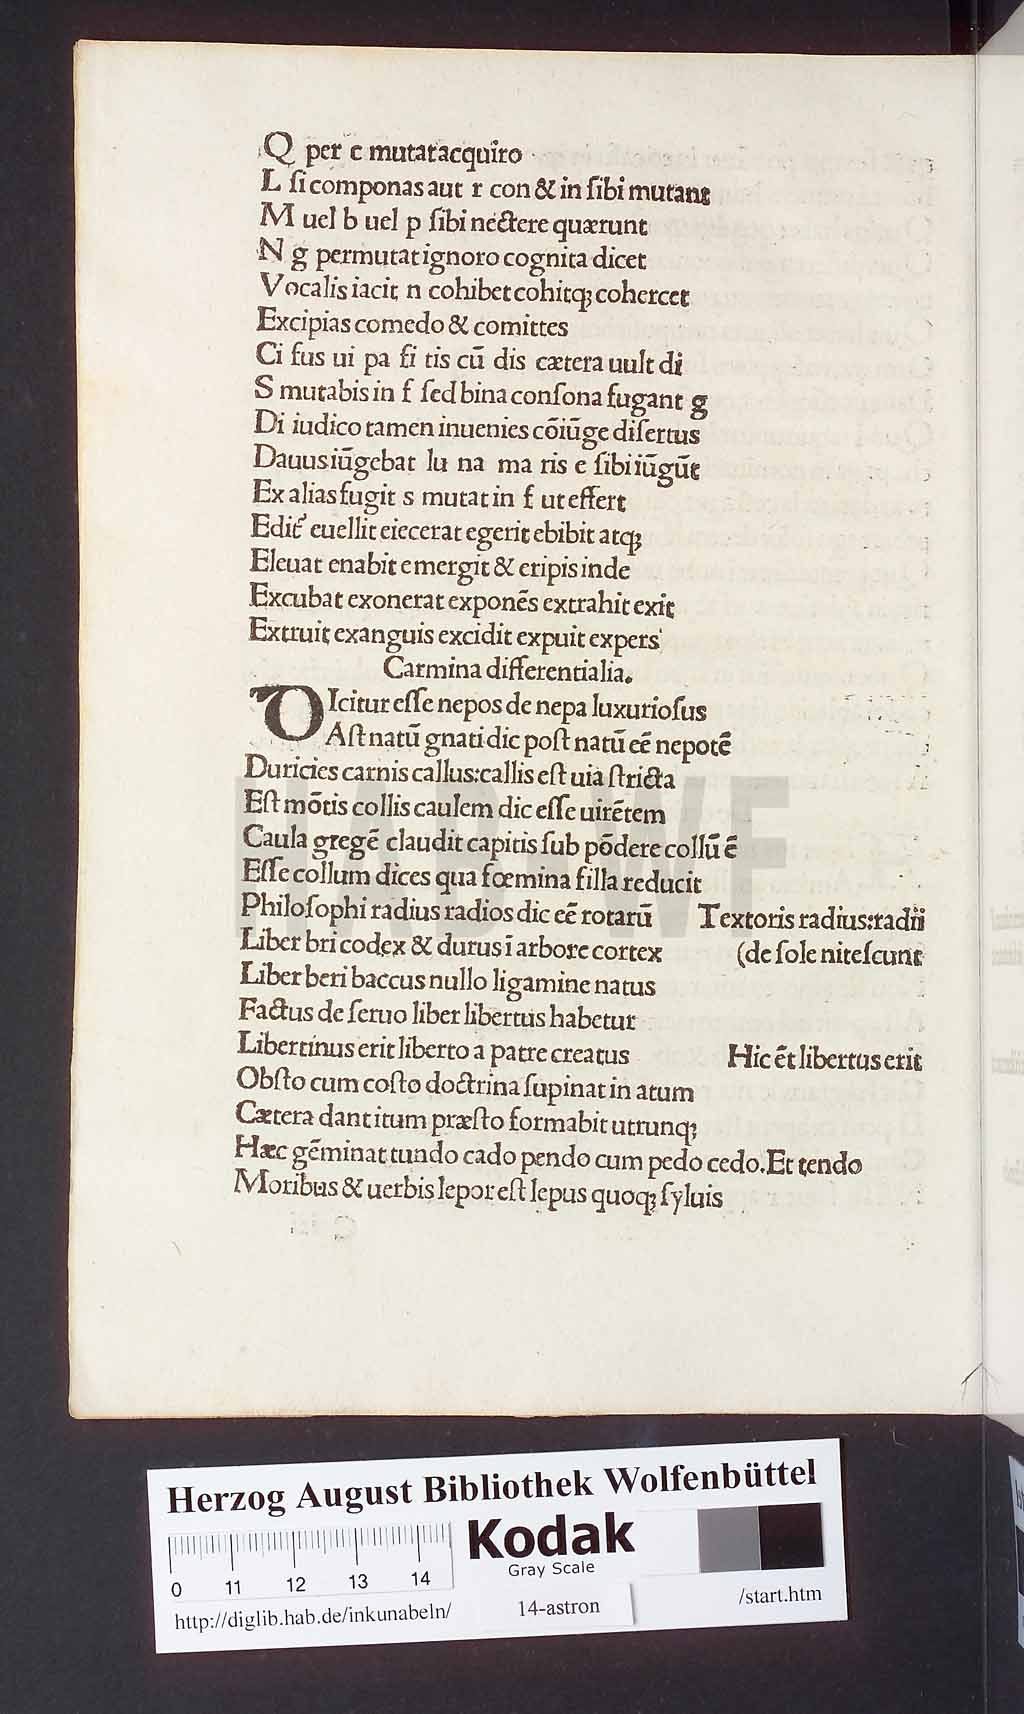 Q per c mutat acquiro
L ſi componas aut r con & in ſibi mutant
M uel b uel p ſibi nectere quærunt
N g permutat ignoro cognita dicet
Vocalis iacit n cohibet cohitqꝫ cohercet
Excipias comedo & comittes
Ci fus ui pa fi tis cū dis cætera uult di
S mutabis in f ſed bina conſona fugant g
Di iudico tamen inuenies cōiūge diſertus
Dauus iūgebat lu na ma ris e ſibi iūgūt
Ex alias fugit s mutat in f ut effert
Edit᾽ euellit eiecerat egerit ebibit atqꝫ
Eleuat enabit emergit & eripis inde
Excubat exonerat exponēs extrahit exit
Extruit exanguis excidit expuit expers
Carmina differentialia.
DIcitur eſſe nepos de nepa luxurioſus
Aſt natū gnati dic poſt natū eē nepotē
Duricies carnis callus:callis eſt uia ſtricta
Eſt mōtis collis caulem dic eſſe uirētem
Caula gregē claudit capitis ſub pōdere collū ē
Eſſe collum dices qua fœmina filla reducit
Philoſophi radius radios dic eē rotarū Textoris radius:radii
Liber bri codex & durus ī arbore cortex (de ſole niteſcunt
Liber beri baccus nullo ligamine natus
Factus de ſeruo liber libertus habetur
Libertinus erit liberto a patre creatus Hic ēt libertus erit
Obſto cum coſto doctrina ſupinat in atum
Cætera dant itum præſto formabit utrunqꝫ
Hæc gēminat tundo cado pendo cum pedo cedo.Et tendo
Moribus & uerbis lepor eſt lepus quoqꝫ ſyluis
HAB WF
Herzog August Bibliothek Wolfenbüttel
Kodak
Gray Scale
0 11 12 13 14
http://diglib.hab.de/inkunabeln/ 14-astron /start.htm